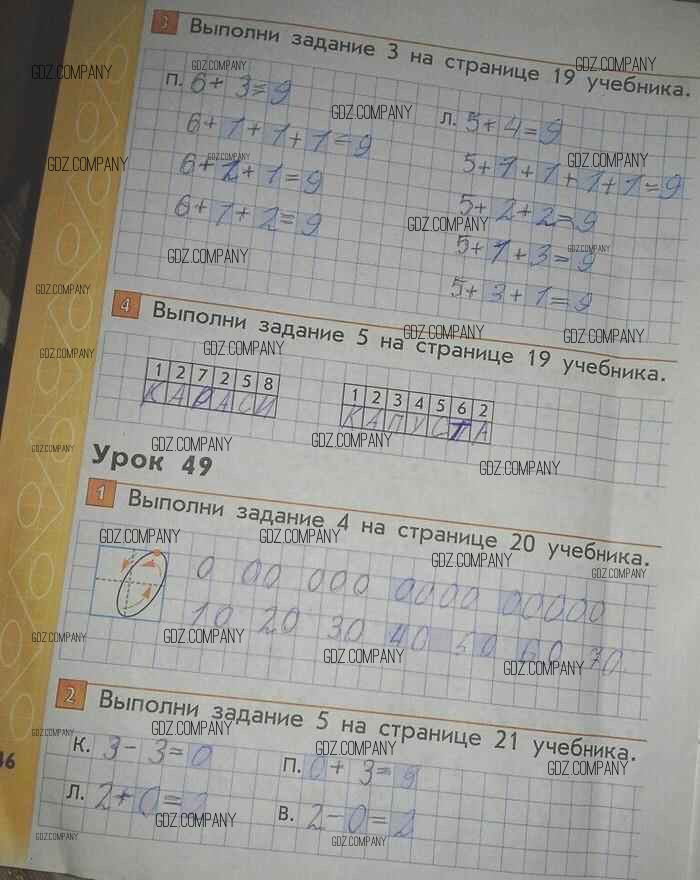 3 Выполни задание 3 на странице 19 учебника.
П. 6+ 3=9
6+ 1+ 1+ 1=9
6+ 2+ 1=9
6+ 1+ 2=9
Л. 5+ 4=9
5+ 1+ 1+ 1+ 1=9
5+ 2+ 2=9
5+ 1+ 3=9
5+ 3+ 1=9
4 Выполни задание 5 на странице 19 учебника.
1 2 7 2 5 8
К А Р А С И
1 2 3 4 5 6 2
К А П У С Т А
Урок 49
1 Выполни задание 4 на странице 20 учебника.
0 00 000 0000 00000
10 20 30 40 50 60 70
2 Выполни задание 5 на странице 21 учебника.
К. 3- 3=0
Л. 2+0=
П. 0+ 3=
В. 2-0=2
46
GDZ.COMPANY